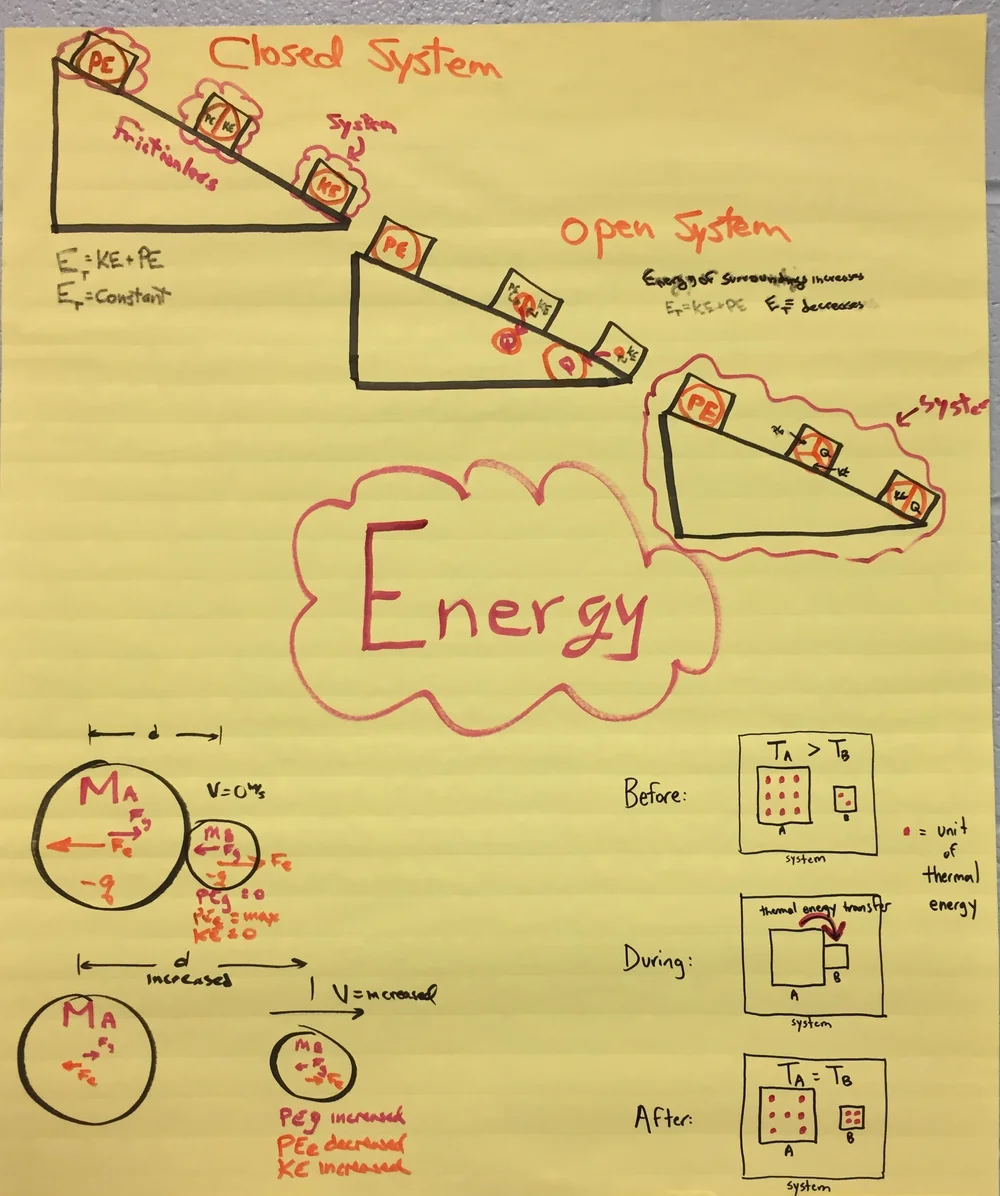 Closed System
PE
PE KE
KE
System
Frictionless
E_T = KE + PE
E_T = Constant
Open System
Energy of surroundings increases
E_T = KE + PE E_T = decreases
PE
KE
Q
Q
KE
System
PE
Q
KE
KE Q
Energy
d
M_A
F_g
F_e
-q
V = 0 m/s
M_B
F_g
F_e
-q
PE_g = 0
PE_e = max
KE = 0
d
increased
V = increased
M_A
F_g
F_e
M_B
F_g
F_e
PEg increased
PEe decreased
KE increased
Before:
T_A > T_B
A
B
system
= unit
of
thermal
energy
During:
thermal energy transfer
A
B
system
After:
T_A = T_B
A
B
system